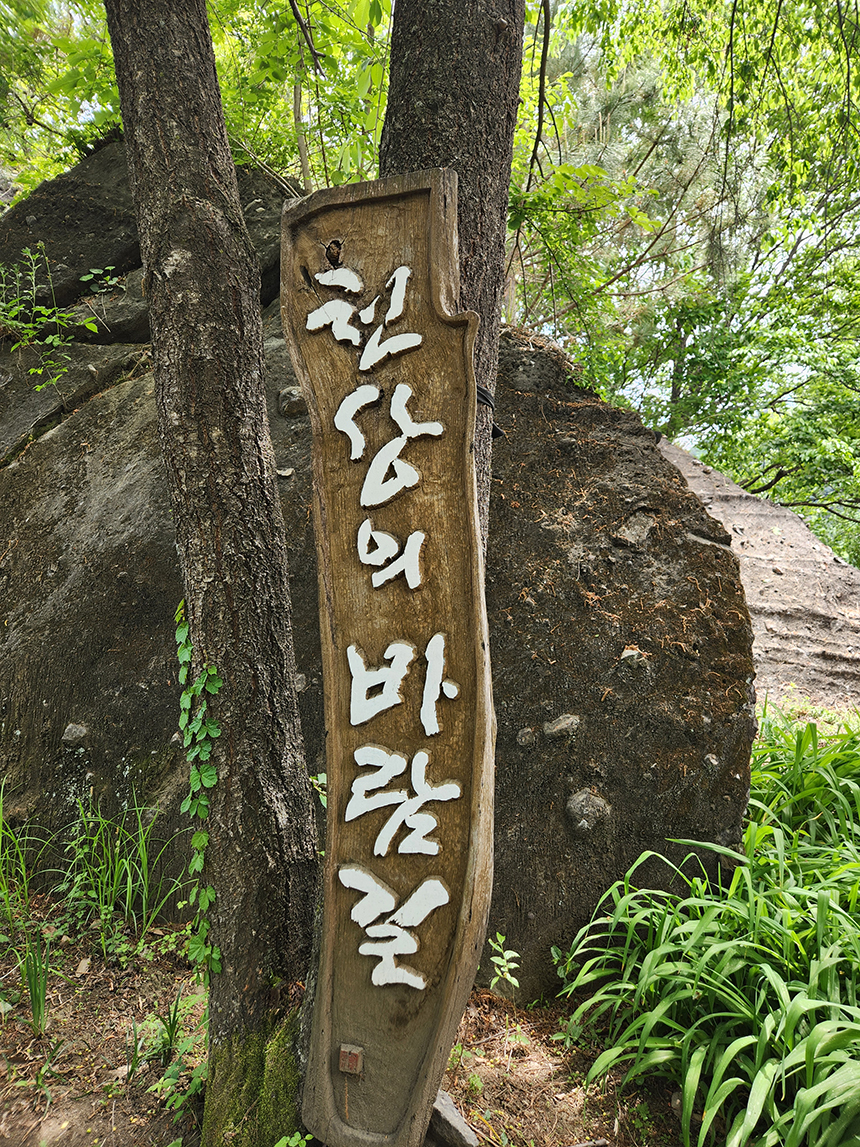 천상의 바람